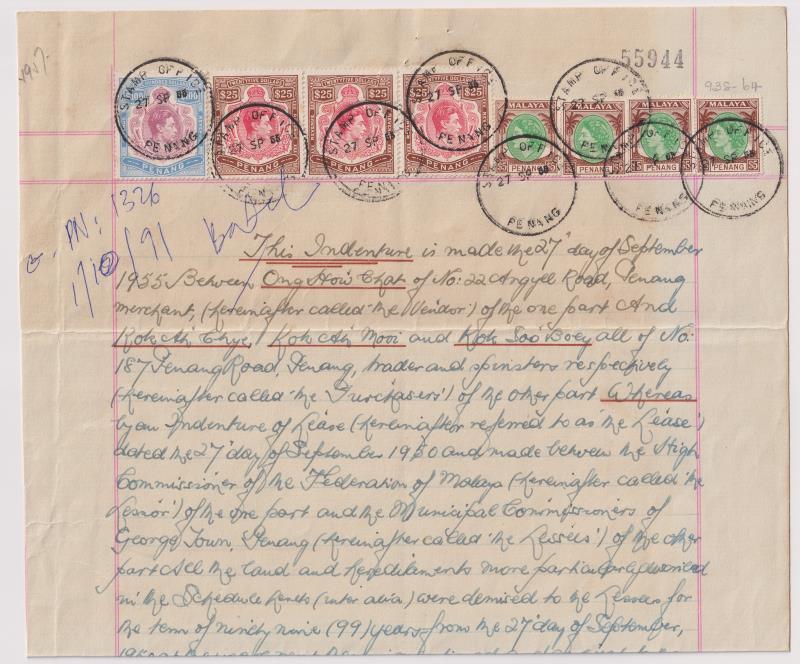 55944
938-64
STAMP OFFICE
27 SP 55
PENANG
TWENTYFIVE DOLLARS
$25 $25
$25 $25
$25 $25
PENANG
MALAYA MALAYA MALAYA MALAYA
PENANG PENANG PENANG PENANG
PN: 1326
1/10/91
This Indenture is made the 27th day of September
1955 Between Ong How Chat of No: 22 Argyll Road, Penang
merchant, (hereinafter called 'the Vendor') of the one part And
Kok Ah Thye, Kok Ah Mooi and Kok Soo Boey all of No:
187 Penang Road, Penang, trader and spinsters respectively
(hereinafter called 'the Purchasers') of the other part Whereas
by an Indenture of Lease (hereinafter referred to as 'the Lease')
dated the 27th day of September 1950 and made between the High
Commissioner of the Federation of Malaya (hereinafter called 'the
Lessor') of the one part and the Municipal Commissioners of
George Town, Penang (hereinafter called 'the Lessees') of the other
part All the land and hereditaments more particularly described
in the Schedule hereto (inter alia) were demised to the Lessees for
the term of ninety nine (99) years from the 27th day of September,